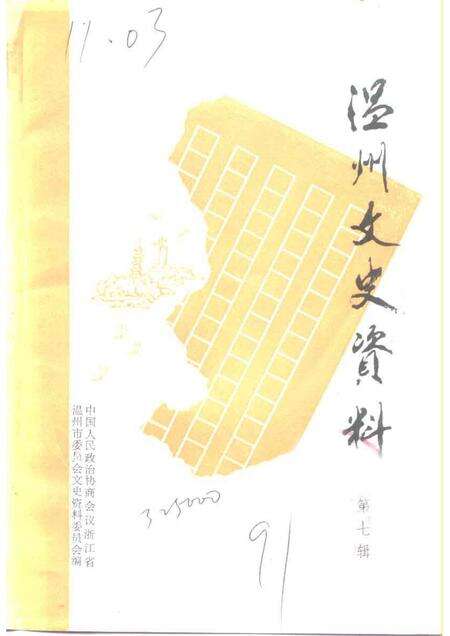 11.03
温州文史資料
第七辑
中国人民政治协商会议浙江省
温州市委员会文史资料委员会编
325000
91